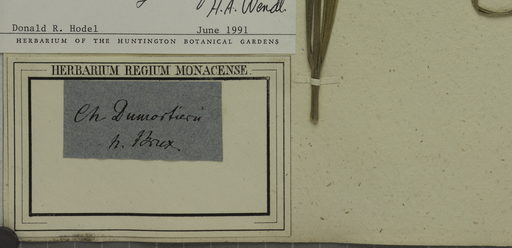 H.A. Wendl
Donald R. Hodel June 1991
HERBARIUM OF THE HUNTINGTON BOTANICAL GARDENS
HERBARIUM REGIUM MONACENSE.
Ch Dumortierii
h. Brux.